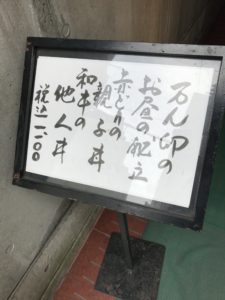 万ん卯の
お昼の献立
赤どりの
親子丼
和牛の
他人丼
税込一、二〇〇